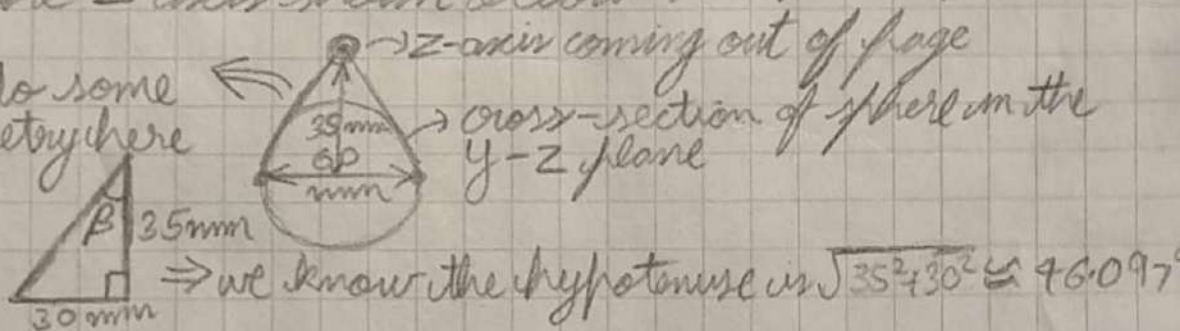 →z-axis coming out of page
do some
etry here
35mm
→ cross-section of sphere in the
60
y-z plane
mm
β
35mm
⇒ we know the hypotenuse is √35²+30² ≃ 46.097
30mm